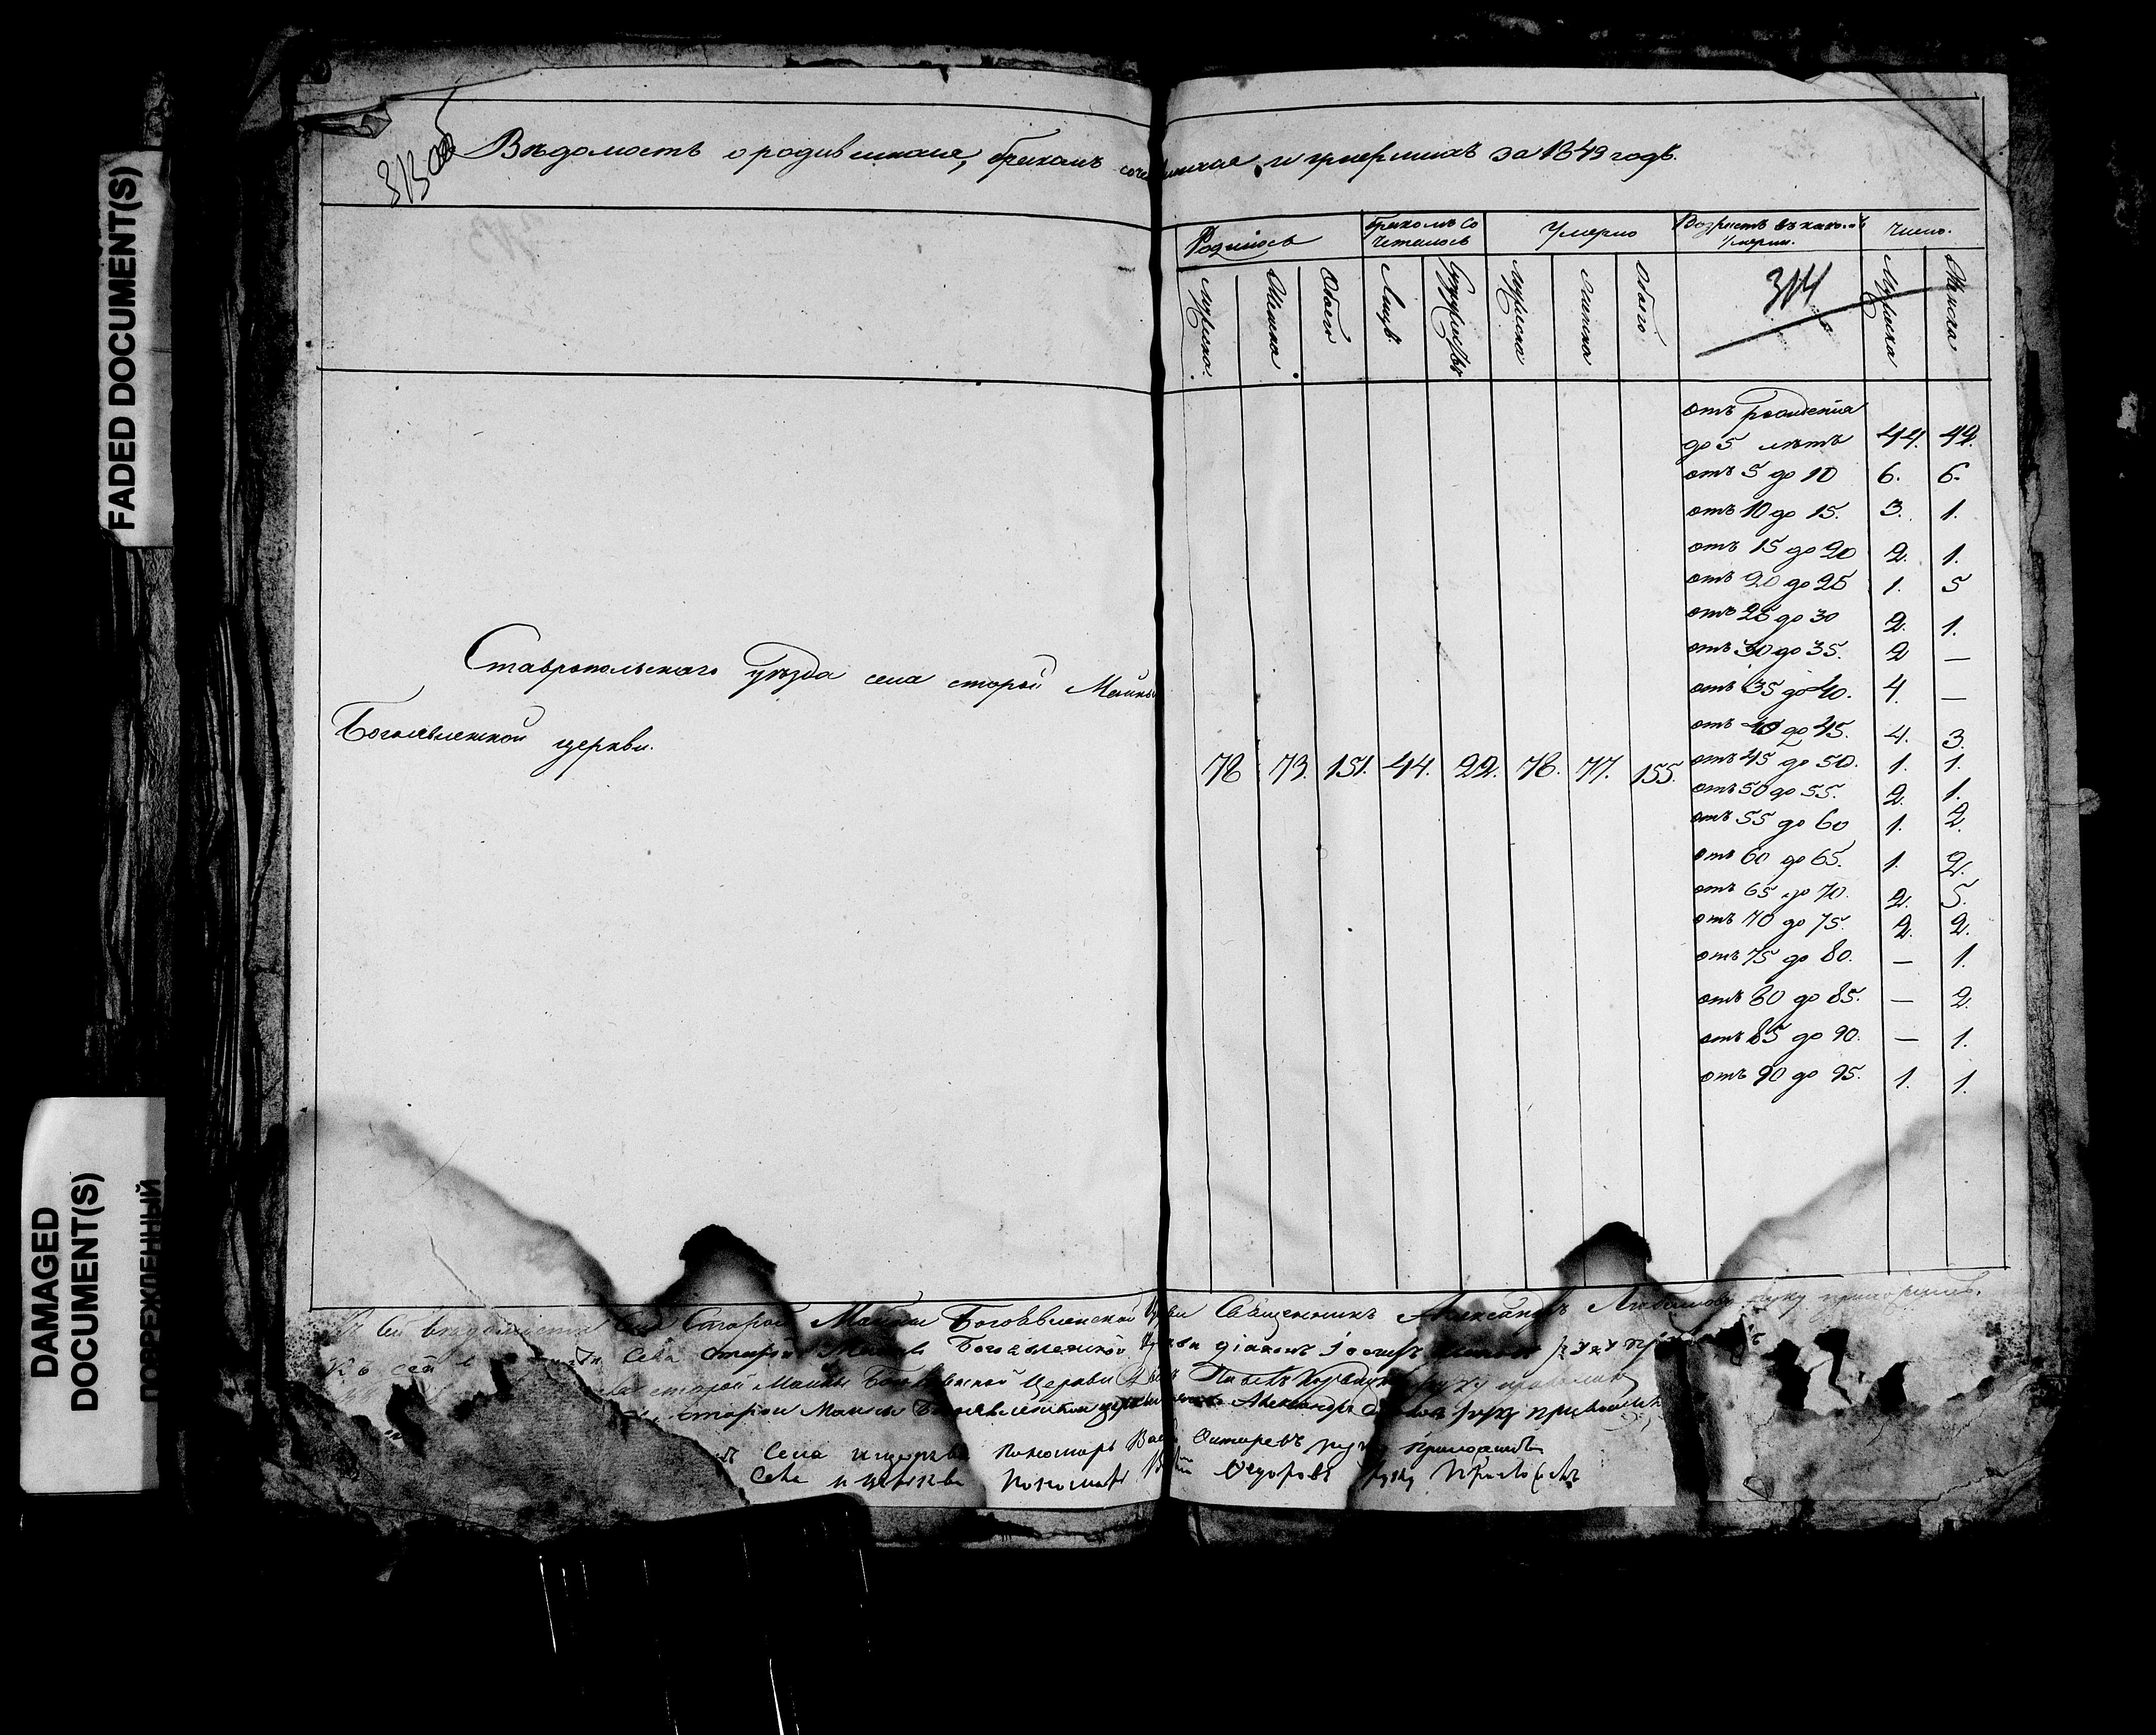 FADED DOCUMENT(S)
DAMAGED
DOCUMENT(S)
ПОВРЕЖДЕННЫЙ
313 об
Вѣдомость о родившихся, бракомъ сочетавшихся и умершихъ за 1849 годъ.
Родилось
Бракомъ со
четалось
Умерло
Возрастъ въ какомъ
умерли.
Число.
Мужеска.
Женска.
Обоего
Лицъ.
Супружествъ
Мужеска
Женска
Обоего
314
Мужеска
Женска
отъ рожденія
до 5 лѣтъ 44. 42.
отъ 5 до 10 6. 6.
отъ 10 до 15. 3. 1.
отъ 15 до 20 2. 1.
отъ 20 до 25 1. 5
отъ 25 до 30 2. 1.
отъ 30 до 35. 2 —
отъ 35 до 40. 4. —
отъ 40 до 45. 4. 3.
отъ 45 до 50. 1. 1.
отъ 50 до 55. 2. 1.
отъ 55 до 60 1. 2.
отъ 60 до 65. 1. 2.
отъ 65 до 70. 2. 5.
отъ 70 до 75. 2. 2.
отъ 75 до 80. — 1.
отъ 80 до 85. — 2.
отъ 85 до 90. — 1.
отъ 90 до 95. 1. 1.
Ставропольскаго уѣзда села старой Майны
Богоявленской церкви.
78 73. 151. 44. 22. 78. 77. 155.
К сей вѣдомости села Старой Майны Богоявленской Церкви Священникъ Александръ руку приложилъ.
Къ сей села старой Майны Богоявленской Церкви діаконъ Іосифъ руку приложилъ
старой Майны Богоявленской Церкви руку приложилъ
старой Майны Богоявленской церкви Александръ руку приложилъ
села и церкви пономарь руку приложилъ
села и церкви пономарь Федоровъ руку приложилъ